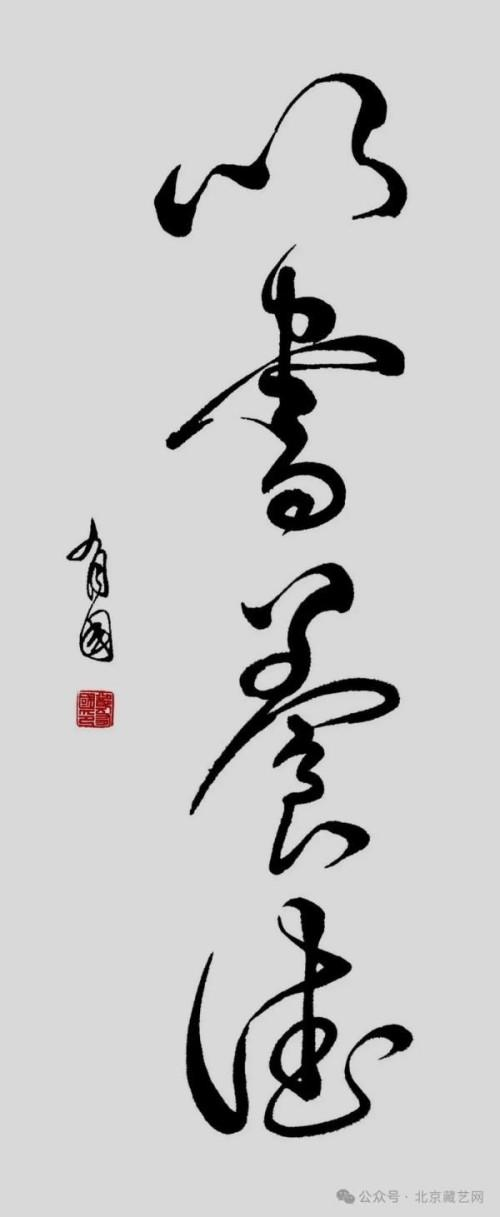 以書養德
有國
公众号·北京藏艺网